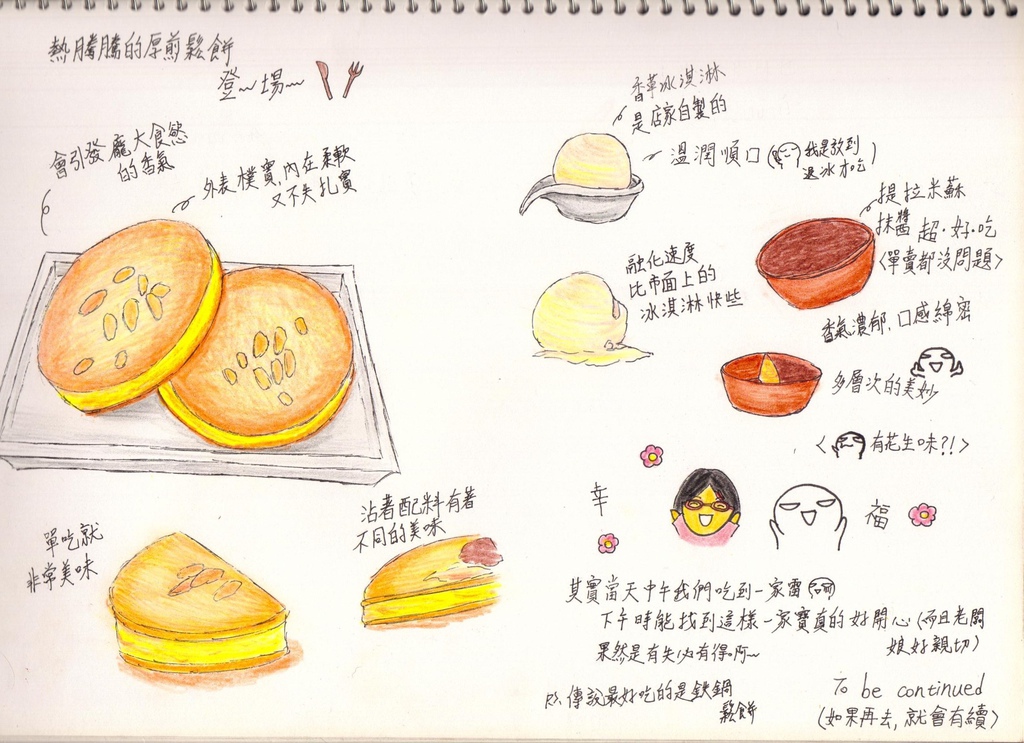 熱騰騰的厚煎鬆餅
登~場~
會引發龐大食慾
的香氣
外表樸實,內在柔軟
又不失扎實
香草冰淇淋
是店家自製的
溫潤順口(我是放到
退冰才吃)
提拉米蘇
抹醬 超·好·吃
<單賣都沒問題>
融化速度
比市面上的
冰淇淋快些
香氣濃郁,口感綿密
多層次的美妙
<有花生味?!>
單吃就
非常美味
沾著配料有著
不同的美味
幸
福
其實當天中午我們吃到一家雷
下午時能找到這樣一家寶真的好開心(而且老闆
娘好親切)
果然是有失必有得啊~
P.S.傳說最好吃的是鐵鍋
鬆餅
To be continued
(如果再去,就會有續)